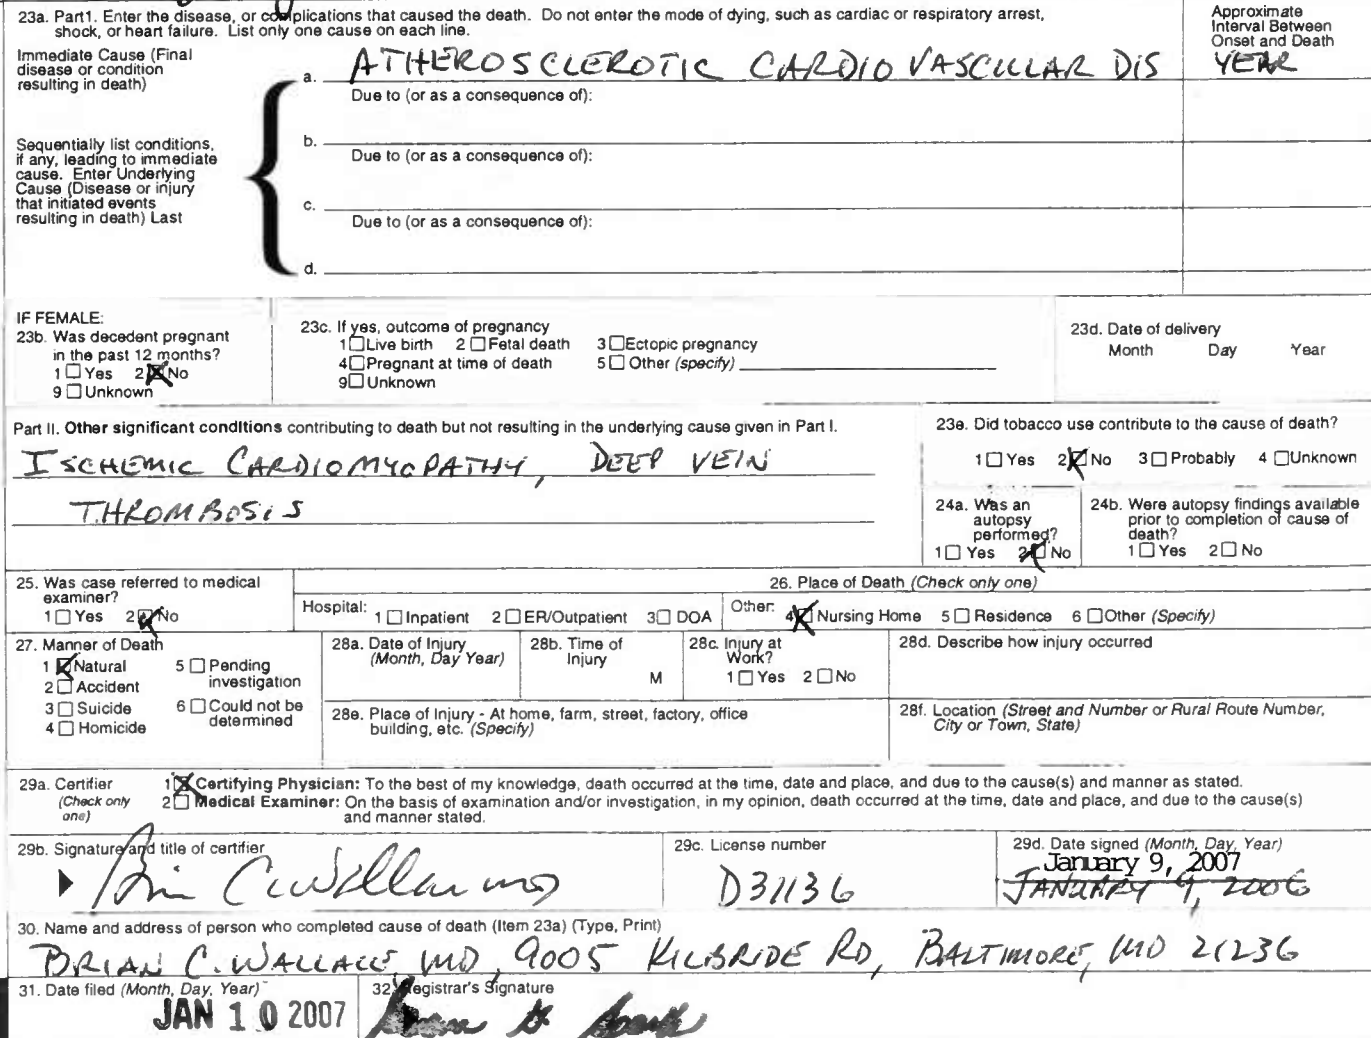 23a. Part1. Enter the disease, or complications that caused the death. Do not enter the mode of dying, such as cardiac or respiratory arrest,
shock, or heart failure. List only one cause on each line.
Approximate
Interval Between
Onset and Death
Immediate Cause (Final
disease or condition
resulting in death)
a. ATHEROSCLEROTIC CARDIOVASCULAR DIS
YEAR
Due to (or as a consequence of):
Sequentially list conditions,
if any, leading to immediate
cause. Enter Underlying
Cause (Disease or injury
that initiated events
resulting in death) Last
b.
Due to (or as a consequence of):
c.
Due to (or as a consequence of):
d.
IF FEMALE:
23b. Was decedent pregnant
in the past 12 months?
1 ☐ Yes 2 ☒ No
9 ☐ Unknown
23c. If yes, outcome of pregnancy
1 ☐ Live birth 2 ☐ Fetal death 3 ☐ Ectopic pregnancy
4 ☐ Pregnant at time of death 5 ☐ Other (specify)
9 ☐ Unknown
23d. Date of delivery
Month Day Year
Part II. Other significant conditions contributing to death but not resulting in the underlying cause given in Part I.
ISCHEMIC CARDIOMYOPATHY, DEEP VEIN
THROMBOSIS
23e. Did tobacco use contribute to the cause of death?
1 ☐ Yes 2 ☒ No 3 ☐ Probably 4 ☐ Unknown
24a. Was an
autopsy
performed?
1 ☐ Yes 2 ☒ No
24b. Were autopsy findings available
prior to completion of cause of
death?
1 ☐ Yes 2 ☐ No
25. Was case referred to medical
examiner?
1 ☐ Yes 2 ☒ No
26. Place of Death (Check only one)
Hospital: 1 ☐ Inpatient 2 ☐ ER/Outpatient 3 ☐ DOA Other: 4 ☒ Nursing Home 5 ☐ Residence 6 ☐ Other (Specify)
27. Manner of Death
1 ☒ Natural
2 ☐ Accident
3 ☐ Suicide
4 ☐ Homicide
5 ☐ Pending
investigation
6 ☐ Could not be
determined
28a. Date of Injury
(Month, Day Year)
28b. Time of
Injury
M
28c. Injury at
Work?
1 ☐ Yes 2 ☐ No
28d. Describe how injury occurred
28e. Place of Injury - At home, farm, street, factory, office
building, etc. (Specify)
28f. Location (Street and Number or Rural Route Number,
City or Town, State)
29a. Certifier
(Check only
one)
1 ☒ Certifying Physician: To the best of my knowledge, death occurred at the time, date and place, and due to the cause(s) and manner as stated.
2 ☐ Medical Examiner: On the basis of examination and/or investigation, in my opinion, death occurred at the time, date and place, and due to the cause(s)
and manner stated.
29b. Signature and title of certifier
Brian C. Wallace MD
29c. License number
D31136
29d. Date signed (Month, Day, Year)
January 9, 2007
JANUARY 9, 2006
30. Name and address of person who completed cause of death (Item 23a) (Type, Print)
BRIAN C. WALLACE, MD, 9005 KILBRIDE RD, BALTIMORE, MD 21236
31. Date filed (Month, Day, Year)
JAN 10 2007
32. Registrar's Signature